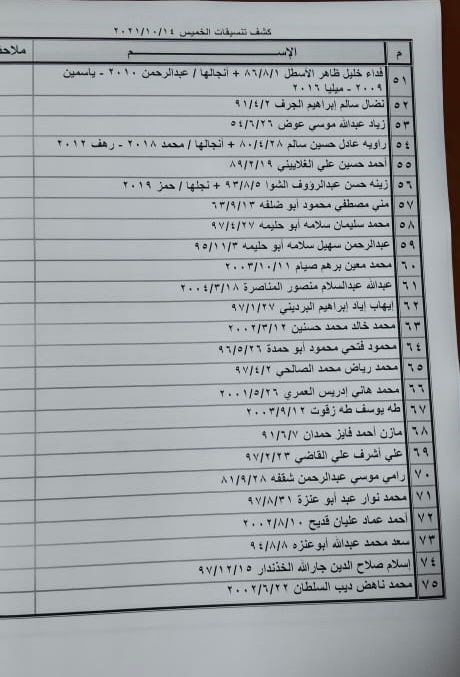 كشف تنسيقات الخميس ٢٠٢١/١٠/١٤
م الإســـــم ملاحظ
٥١ فداء خليل ظاهر الأسطل ٨٦/٨/١ + أنجالها / عبدالرحمن ٢٠١٠ - ياسمين
٢٠٠٩ - ميليا ٢٠١٦
٥٢ نضال سالم إبراهيم الجرف ٩١/٤/٢
٥٣ زياد عبدالله موسي عوض ٥٤/٦/٢٦
٥٤ راويه عادل حسين سالم ٨٠/٤/٢٨ + أنجالها / محمد ٢٠١٨ - رهف ٢٠١٢
٥٥ أحمد حسين علي الغلاييني ٨٩/٢/١٩
٥٦ زينه حسن عبدالرؤوف الشوا ٩٣/٨/٥ + نجلها / حمز ٢٠١٩
٥٧ مني مصطفي محمود أبو ضلفه ٦٣/٩/١٣
٥٨ محمد سليمان سلامه أبو حليمه ٩٧/٤/٢٧
٥٩ عبدالرحمن سهيل سلامه أبو حليمه ٩٥/١١/٣
٦٠ محمد معين برهم صيام ٢٠٠٣/١٠/١١
٦١ عبدالله عبدالسلام منصور المناصرة ٢٠٠٤/٣/١٨
٦٢ إيهاب إياد إبراهيم البرديني ٩٧/١/٢٧
٦٣ محمد خالد محمد حسنين ٢٠٠٢/٣/١٢
٦٤ محمود فتحي محمود أبو حمدة ٩٦/٥/٢٦
٦٥ محمد رياض محمد الصالحي ٩٧/٤/٢
٦٦ محمد هاني إدريس العمري ٢٠٠١/٥/٢٦
٦٧ طه يوسف طه زقوت ٢٠٠٣/٩/١٢
٦٨ مازن أحمد فايز حمدان ٩١/٦/٧
٦٩ علي أشرف علي القاضي ٩٧/٢/٢٣
٧٠ رامي موسي عبدالرحمن شقفه ٨١/٩/٢٨
٧١ محمد نوار عبد أبو عنزة ٩٧/٨/٣١
٧٢ أحمد عماد عليان قديح ٢٠٠٢/٨/١٠
٧٣ سعد محمد عبدالله أبوعنزه ٩٤/٨/٨
٧٤ إسلام صلاح الدين جارالله الخذندار ٩٧/١٢/١٥
٧٥ محمد ناهض ديب السلطان ٢٠٠٢/٦/٢٢